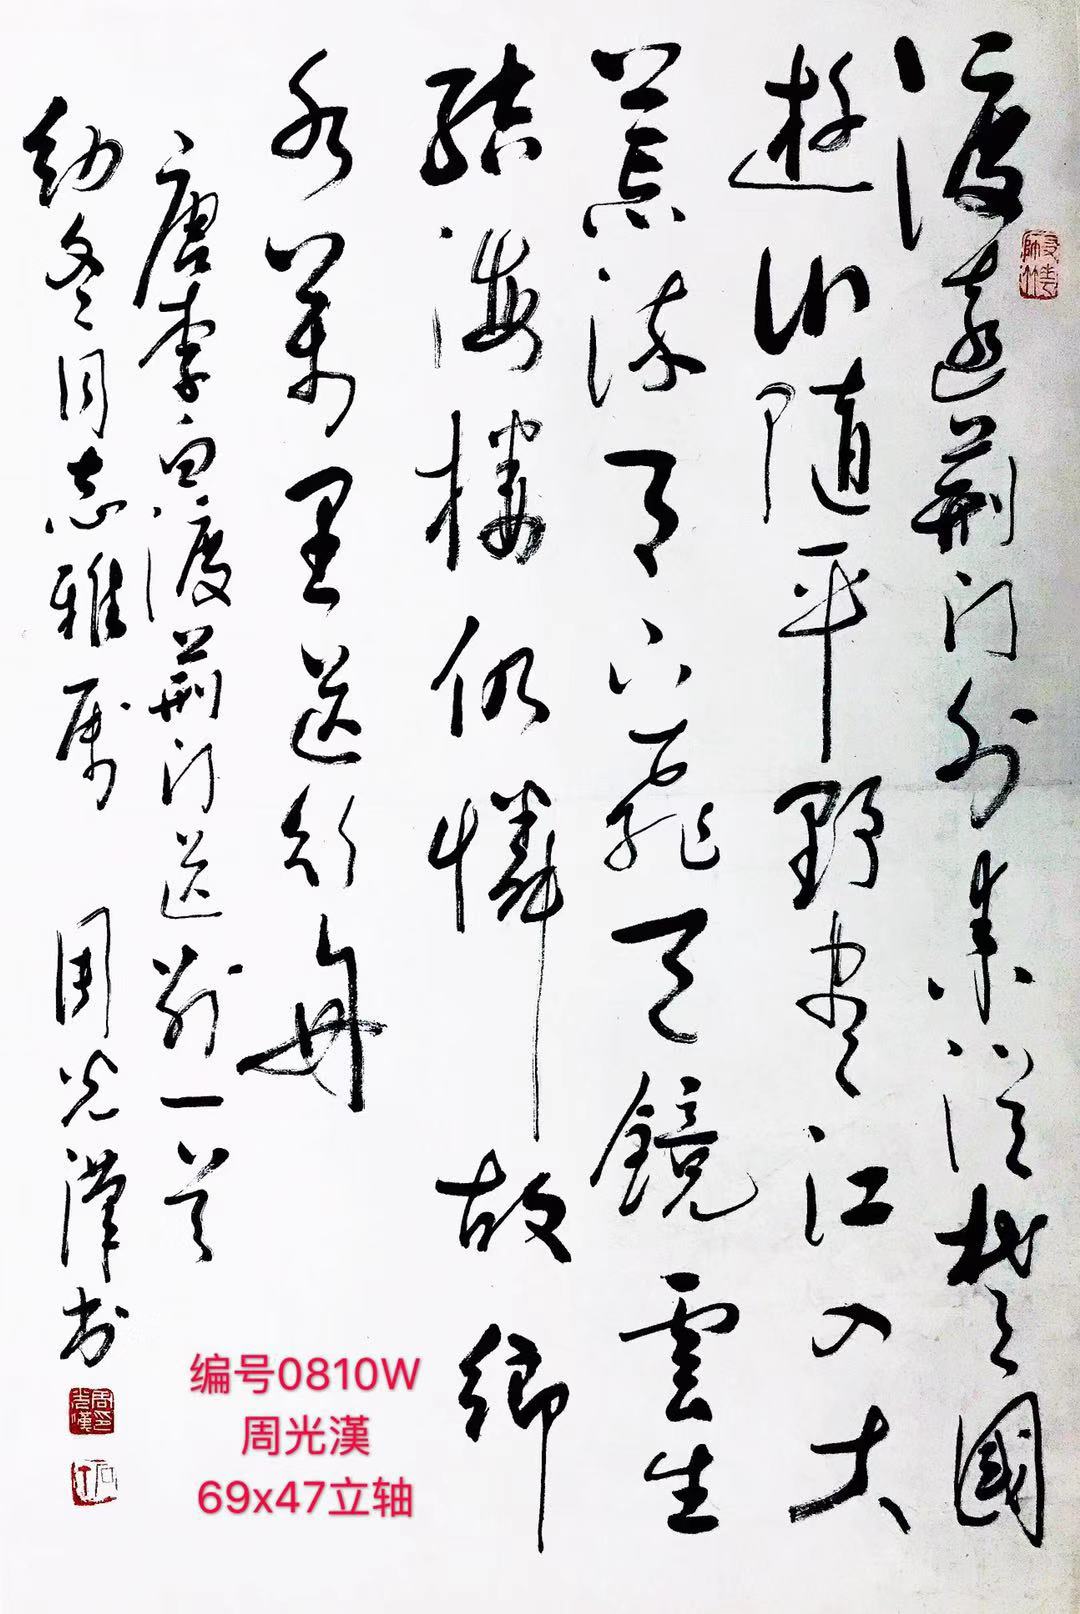 渡遠荆门外来從楚國
遊山随平野尽江入大
荒流月下飛天鏡雲生
结海楼仍憐故鄉
水萬里送行舟
唐李白渡荆门送别一首
幼冬同志雅属 周光漢书
周光漢印
编号0810W
周光漢
69x47立轴